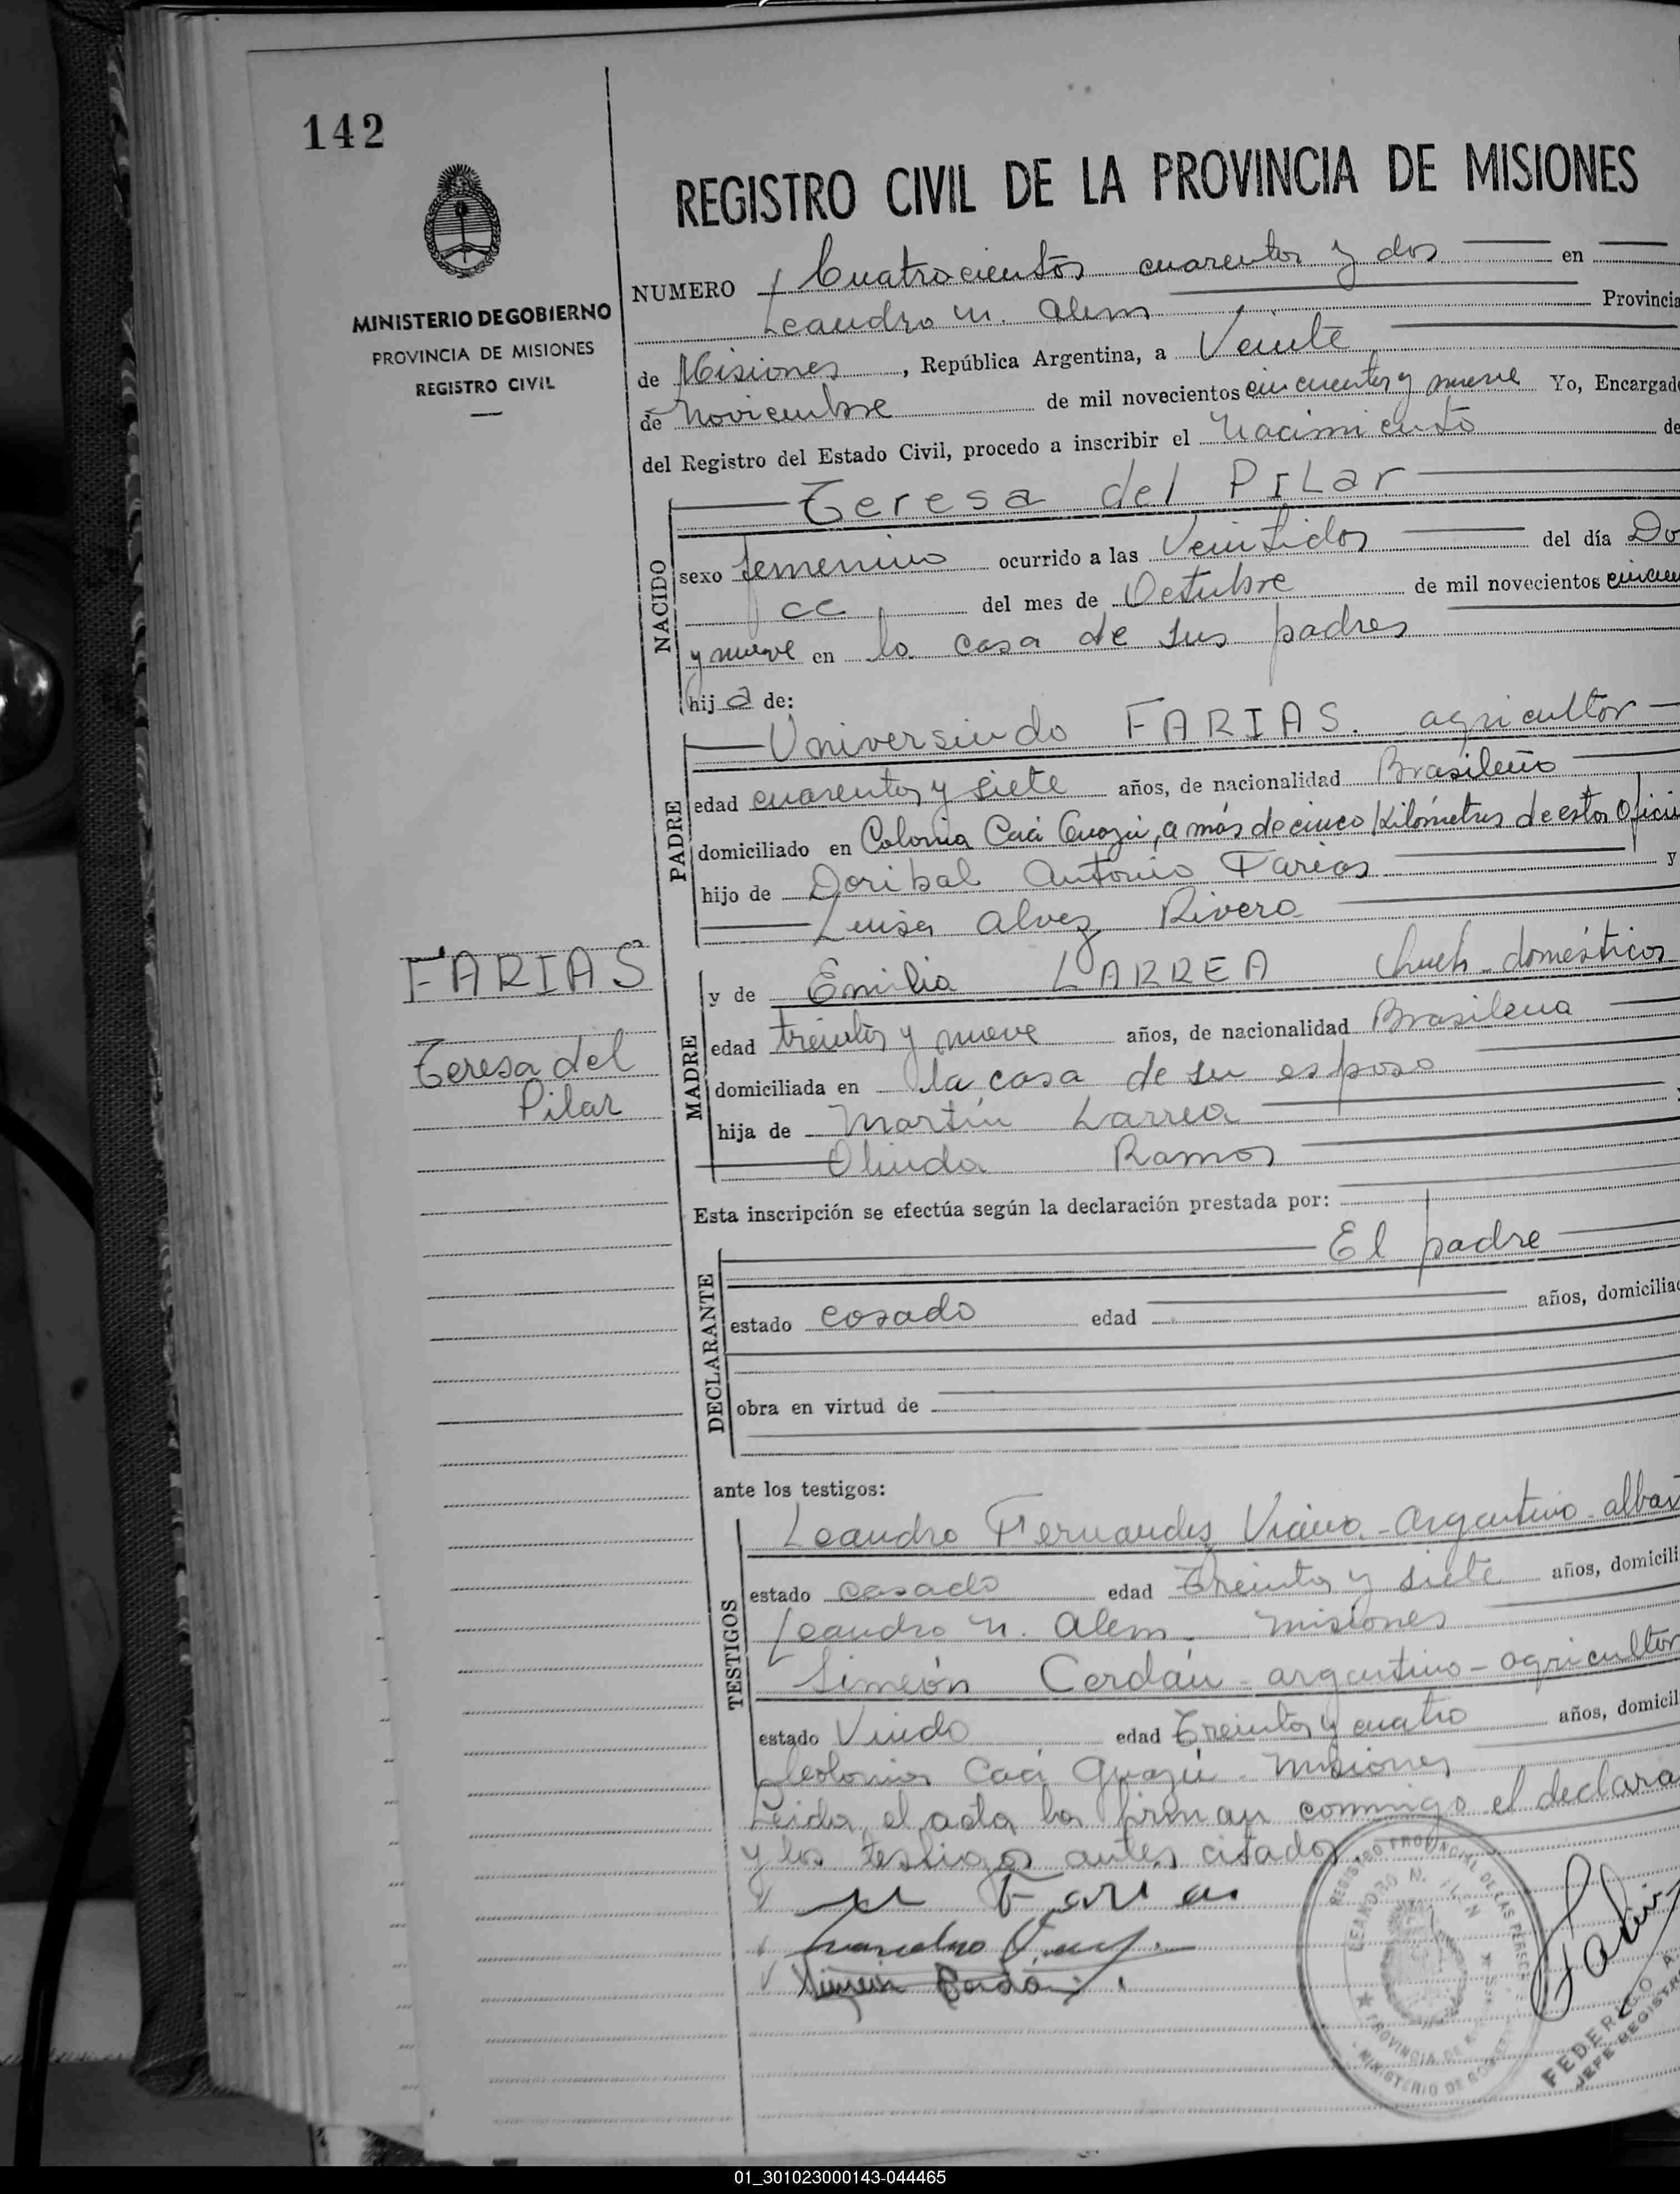 142
MINISTERIO DE GOBIERNO
PROVINCIA DE MISIONES
REGISTRO CIVIL
REGISTRO CIVIL DE LA PROVINCIA DE MISIONES
NUMERO Cuatrocientos cuarenta y dos en
Leandro N. Alem Provincia
de Misiones, República Argentina, a Veinte
de Noviembre de mil novecientos cincuenta y nueve Yo, Encargad
del Registro del Estado Civil, procedo a inscribir el Nacimiento de
NACIDO
Teresa del Pilar
sexo femenino ocurrido a las Veintidos del día Do
ce del mes de Octubre de mil novecientos cincuen
y nueve en la casa de sus padres
hija de:
PADRE
Universindo FARIAS. agricultor
edad cuarenta y siete años, de nacionalidad Brasileño
domiciliado en Colonia Caá Guazú, a más de cinco Kilómetros de esta Ofici
hijo de Doribal Antonio Farias y
Luisa Alvez Rivero
FARIAS
Teresa del
Pilar
MADRE
y de Emilia LARREA domésticos
edad treinta y nueve años, de nacionalidad Brasilena
domiciliada en la casa de su esposo
hija de Martín Larrea
Olinda Ramos
Esta inscripción se efectúa según la declaración prestada por:
DECLARANTE
El padre
estado casado edad años, domicilia
obra en virtud de
ante los testigos:
TESTIGOS
Leandro Fernandes - Argentino - albañ
estado casado edad Treinta y siete años, domicili
Leandro N. Alem - Misiones
Simeón Cerdán - argentino - agricultor
estado Viudo edad Treinta y cuatro años, domicil
Colonia Caá Guazú - Misiones
Leida el acta la firman conmigo el declara
y los testigos antes citados
Farias
REGISTRO PROVINCIAL DE LAS PERSO
LEANDRO N. ALEM
PROVINCIA DE
MINISTERIO DE GOBIER
FEDERICO A.
JEFE REGISTR
01_301023000143-044465